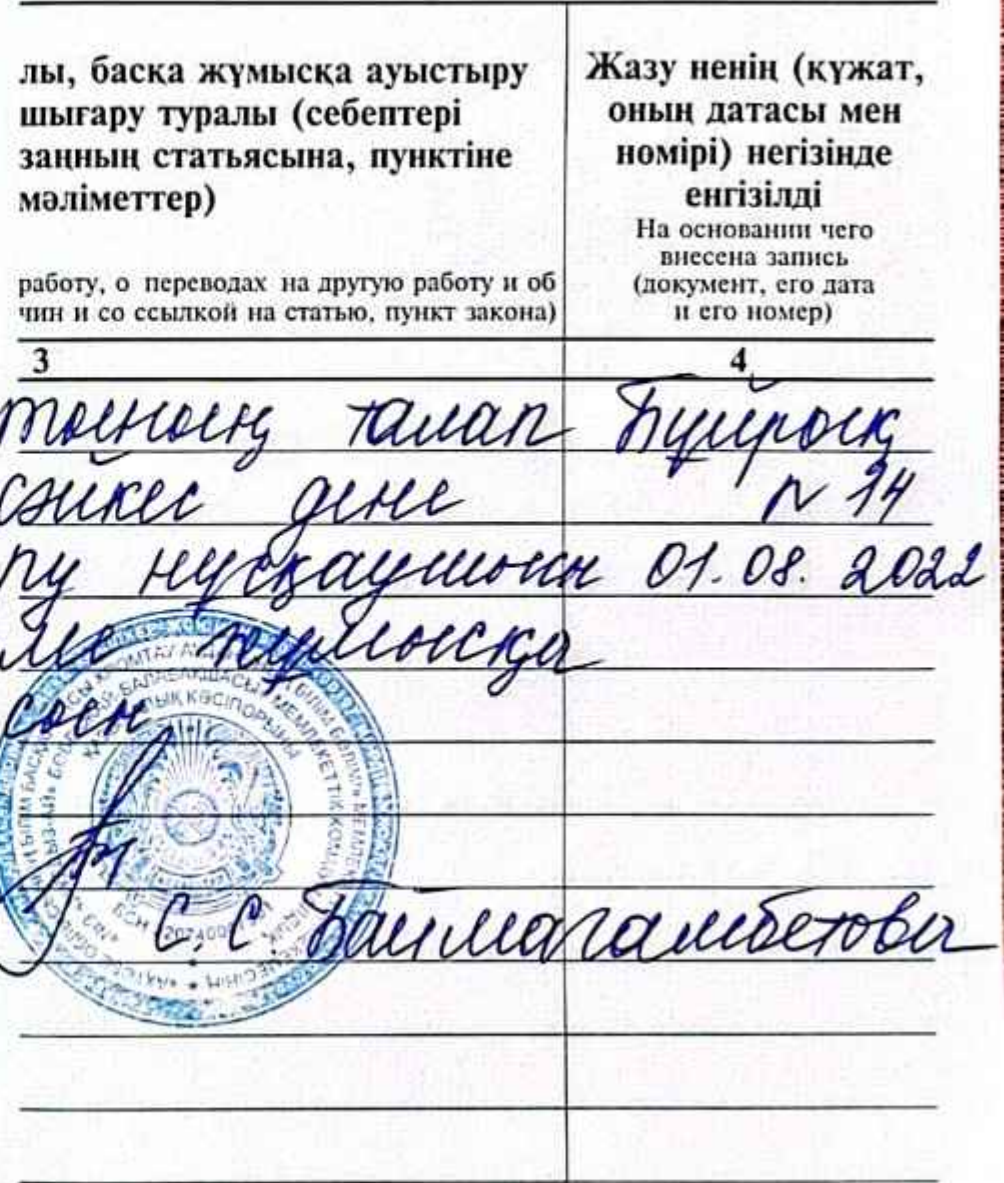 лы, басқа жұмысқа ауыстыру
шығару туралы (себептері
заңның статьясына, пунктіне
мәліметтер)
работу, о переводах на другую работу и об
чин и со ссылкой на статью, пункт закона)
Жазу ненің (құжат,
оның датасы мен
номірі) негізінде
енгізілді
На основании чего
внесена запись
(документ, его дата
и его номер)
3 4
тының талап Бұйрық
сәйкес дене N 14
ру нұсқаушысы 01.08.2022
жұмысқа
С.С Баймагамбетова